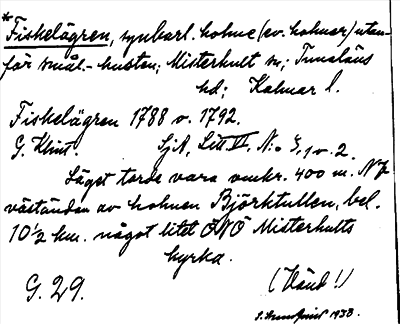 *Fiskelägren, synbarl. holme (ev. holmar) utan-
för smål.-kusten; Misterhult sn; Tunaläns
hd; Kalmar l.
Fiskelägren 1788 o. 1792.
G. Klint. SjA, Litt VI, N:o 1 o. 2.
Läget torde vara omkr. 400 m. NV
väständan av holmen Björktullen, bel.
10 1/2 km. något litet ÖNÖ Misterhults
kyrka.
G. 29. (Vänd!)
1938